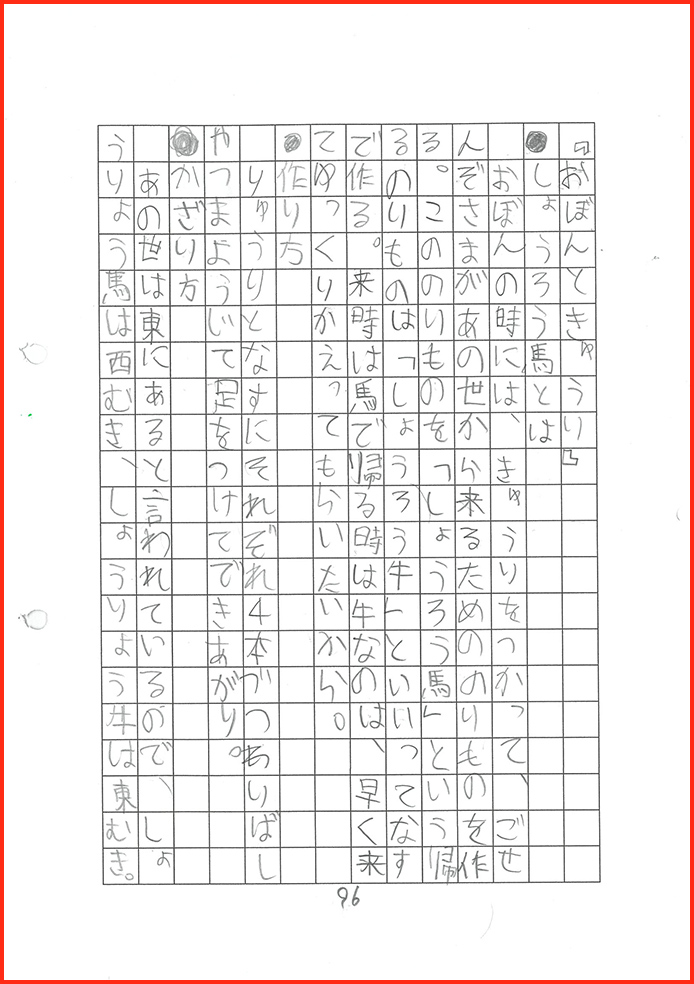 『おぼんときゅうり』
●しょうろう馬とは
おぼんの時には、きゅうりをつかって、ごせ
んぞさまがあの世から来るためののりものを作
る。こののりものを「しょうろう馬」という帰
るのりものは「しょうろう牛」といいってなす
で作る。来時は馬で帰る時は牛なのは、早く来
てゆっくりかえってもらいたいから。
●作り方
りゅうりとなすにそれぞれ4本づつわりばし
やつまようじて足をつけてできあがり。
●かざり方
あの世は東にあると言われているので、しょ
うりょう馬は西むき、しょうりょう牛は東むき。
96